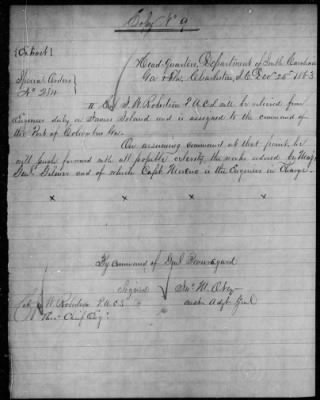 Copy No 9
{Extract}
Head-Quarters, Department of South Carolina
Ga & Fla, Charleston, S.C. Decr 26th 1863
Special Orders
No
II Capt J. W. Robertson P.A.C.S. will be relieved from
Engineer duty on James Island and is assigned to the command of
the Post of Columbus Ga.
On assuming command at that point, he
will push forward with all possible activity the works ordered by Maj
Genl Gilmer and of which Capt is the Engineer in Charge.
x x x x
By command of Genl Beauregard
Signed Jno. M. Otey
Asst Adjt Genl
Capt J. W. Robertson P.A.C.S.
Thro' Chief Eng'r